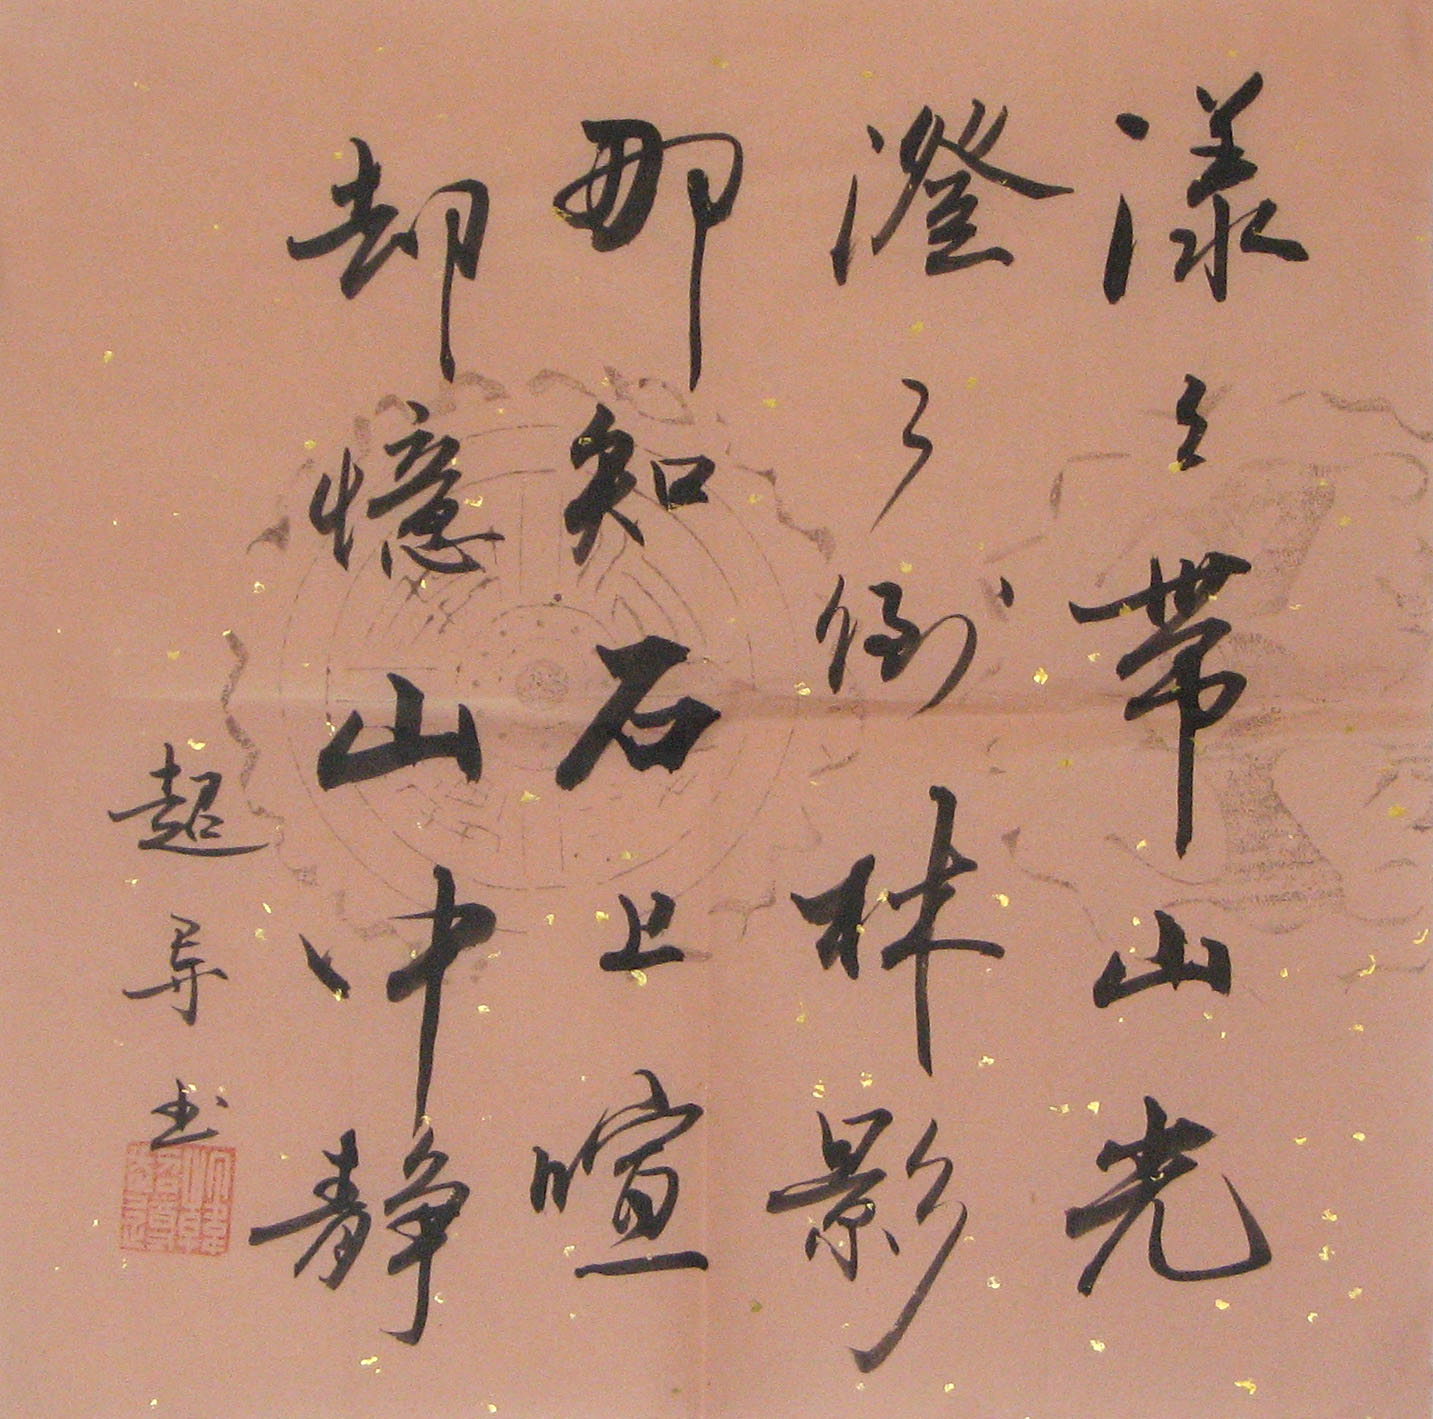 漾々帶山光
澄々倒林影
那知石上喧
却憶山中静
超异书